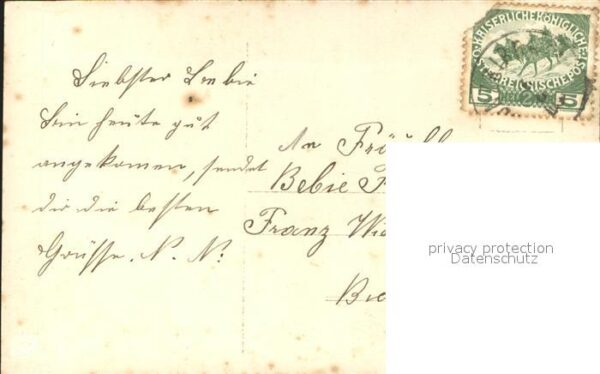 Liebster Bebie
Bin heute gut
angekommen, sendet
dir die besten
Grüsse. N. N:
An Fräul
Bebie
Franz
KAISERLICHE KÖNIGLICHE
ÖSTERREICHISCHE POST
5 5
privacy protection
Datenschutz